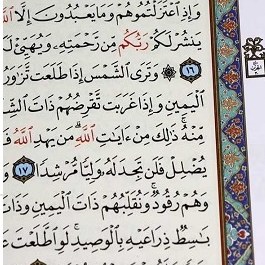 وَإِذِ ٱعْتَزَلْتُمُوهُمْ وَمَا يَعْبُدُونَ إِلَّا ٱللَّهَ
يَنشُرْ لَكُمْ رَبُّكُم مِّن رَّحْمَتِهِۦ وَيُهَيِّئْ لَكُم
١٦ وَتَرَى ٱلشَّمْسَ إِذَا طَلَعَت تَّزَٰوَرُ
ٱلْيَمِينِ وَإِذَا غَرَبَت تَّقْرِضُهُمْ ذَاتَ
مِّنْهُ ۚ ذَٰلِكَ مِنْ ءَايَٰتِ ٱللَّهِ ۗ مَن يَهْدِ ٱللَّهُ
يُضْلِلْ فَلَن تَجِدَ لَهُۥ وَلِيًّا مُّرْشِدًا ١٧
وَهُمْ رُقُودٌ ۚ وَنُقَلِّبُهُمْ ذَاتَ ٱلْيَمِينِ وَذَاتَ
بَٰسِطٌ ذِرَاعَيْهِ بِٱلْوَصِيدِ ۚ لَوِ ٱطَّلَعْتَ